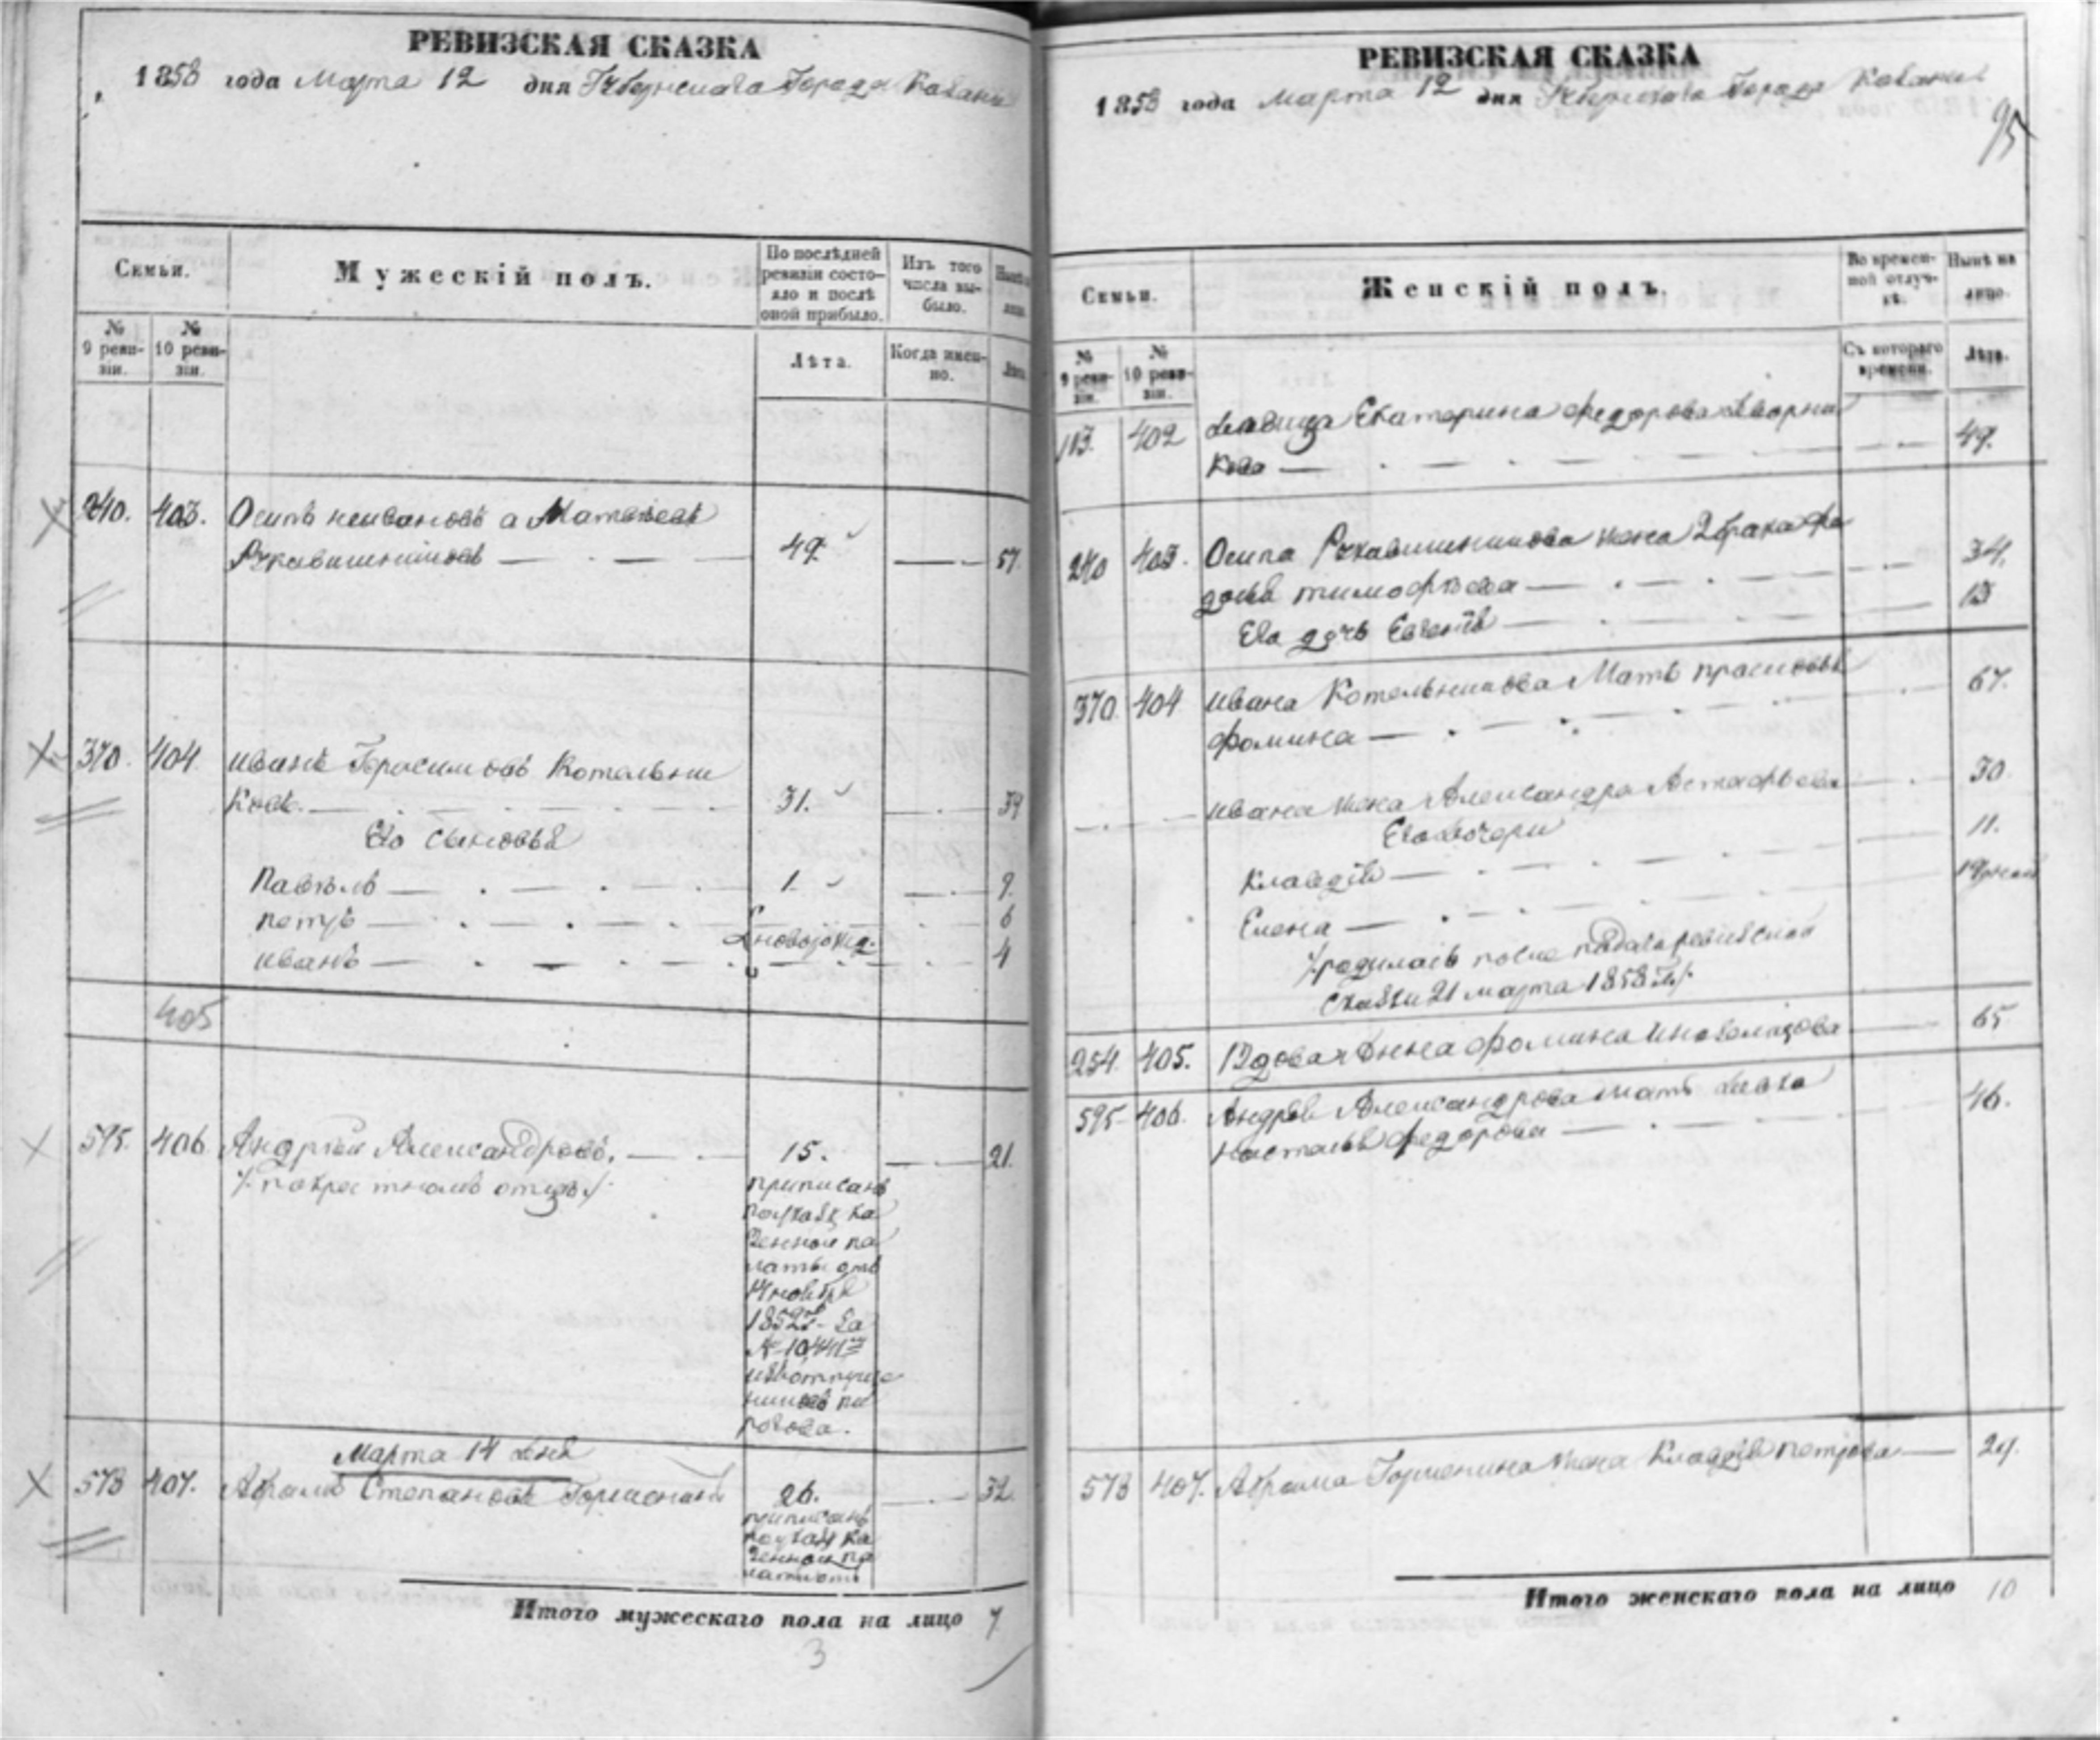 РЕВИЗСКАЯ СКАЗКА
1858 года Марта 12 дня Губернскаго Города Казани
Семьи.
Мужескій полъ.
По послѣдней
ревизіи состо-
яло и послѣ
оной прибыло.
Изъ того
числа вы-
было.
№
9 реви-
зіи.
№
10 реви-
зіи.
Лѣта.
Когда имен-
но.
240. 403. Осипъ неивановъ а Матвѣевъ
Рукавишниковъ 49 57.
370. 404. Иванъ Герасимовъ Котельни
ковъ. 31. 39
Его сыновья
Павелъ 1. 9.
Петръ 6
новорожд.
Иванъ 4
405
595. 406 Андрей Александровъ. 15. 21.
по крестному отцу
приписанъ
по указу ка
зенной па
латы отъ
14 ноября
1852 г. за
№ 10441
Марта 14 дня
573 407. Абрамъ Степановъ Горшенинъ 26. 32.
приписанъ
по указу ка
зенной па
латы отъ
Итого мужескаго пола на лицо 7
3
РЕВИЗСКАЯ СКАЗКА
1858 года Марта 12 дня Губернскаго Города Казани
95
Семьи.
Женскій полъ.
Во времен-
ной отлуч-
кѣ.
Нынѣ на
лицо.
№
9 реви-
зіи.
№
10 реви-
зіи.
Съ котораго
времени.
Лѣта.
113. 402 Девица Екатерина Федорова Дворни
кова 49.
240 403. Осипа Рукавишникова жена 2 брака Фе
досья Тимофѣева 34.
Его дочь Евгенія 13
370. 404 Ивана Котельникова Мать Прасковья
Фомина 67.
Ивана жена Александра Астафьева 30
Его дочери
Клавдія 11.
Елена
родилась после подачи ревизской
сказки 21 марта 1858 г.
254. 405. Вдова Анна Фомина 65
595 406. Андрея Александрова мать девка
Наталья Федорова 46.
573 407. Абрама Горшенина жена Клавдія Петрова 29.
Итого женскаго пола на лицо 10